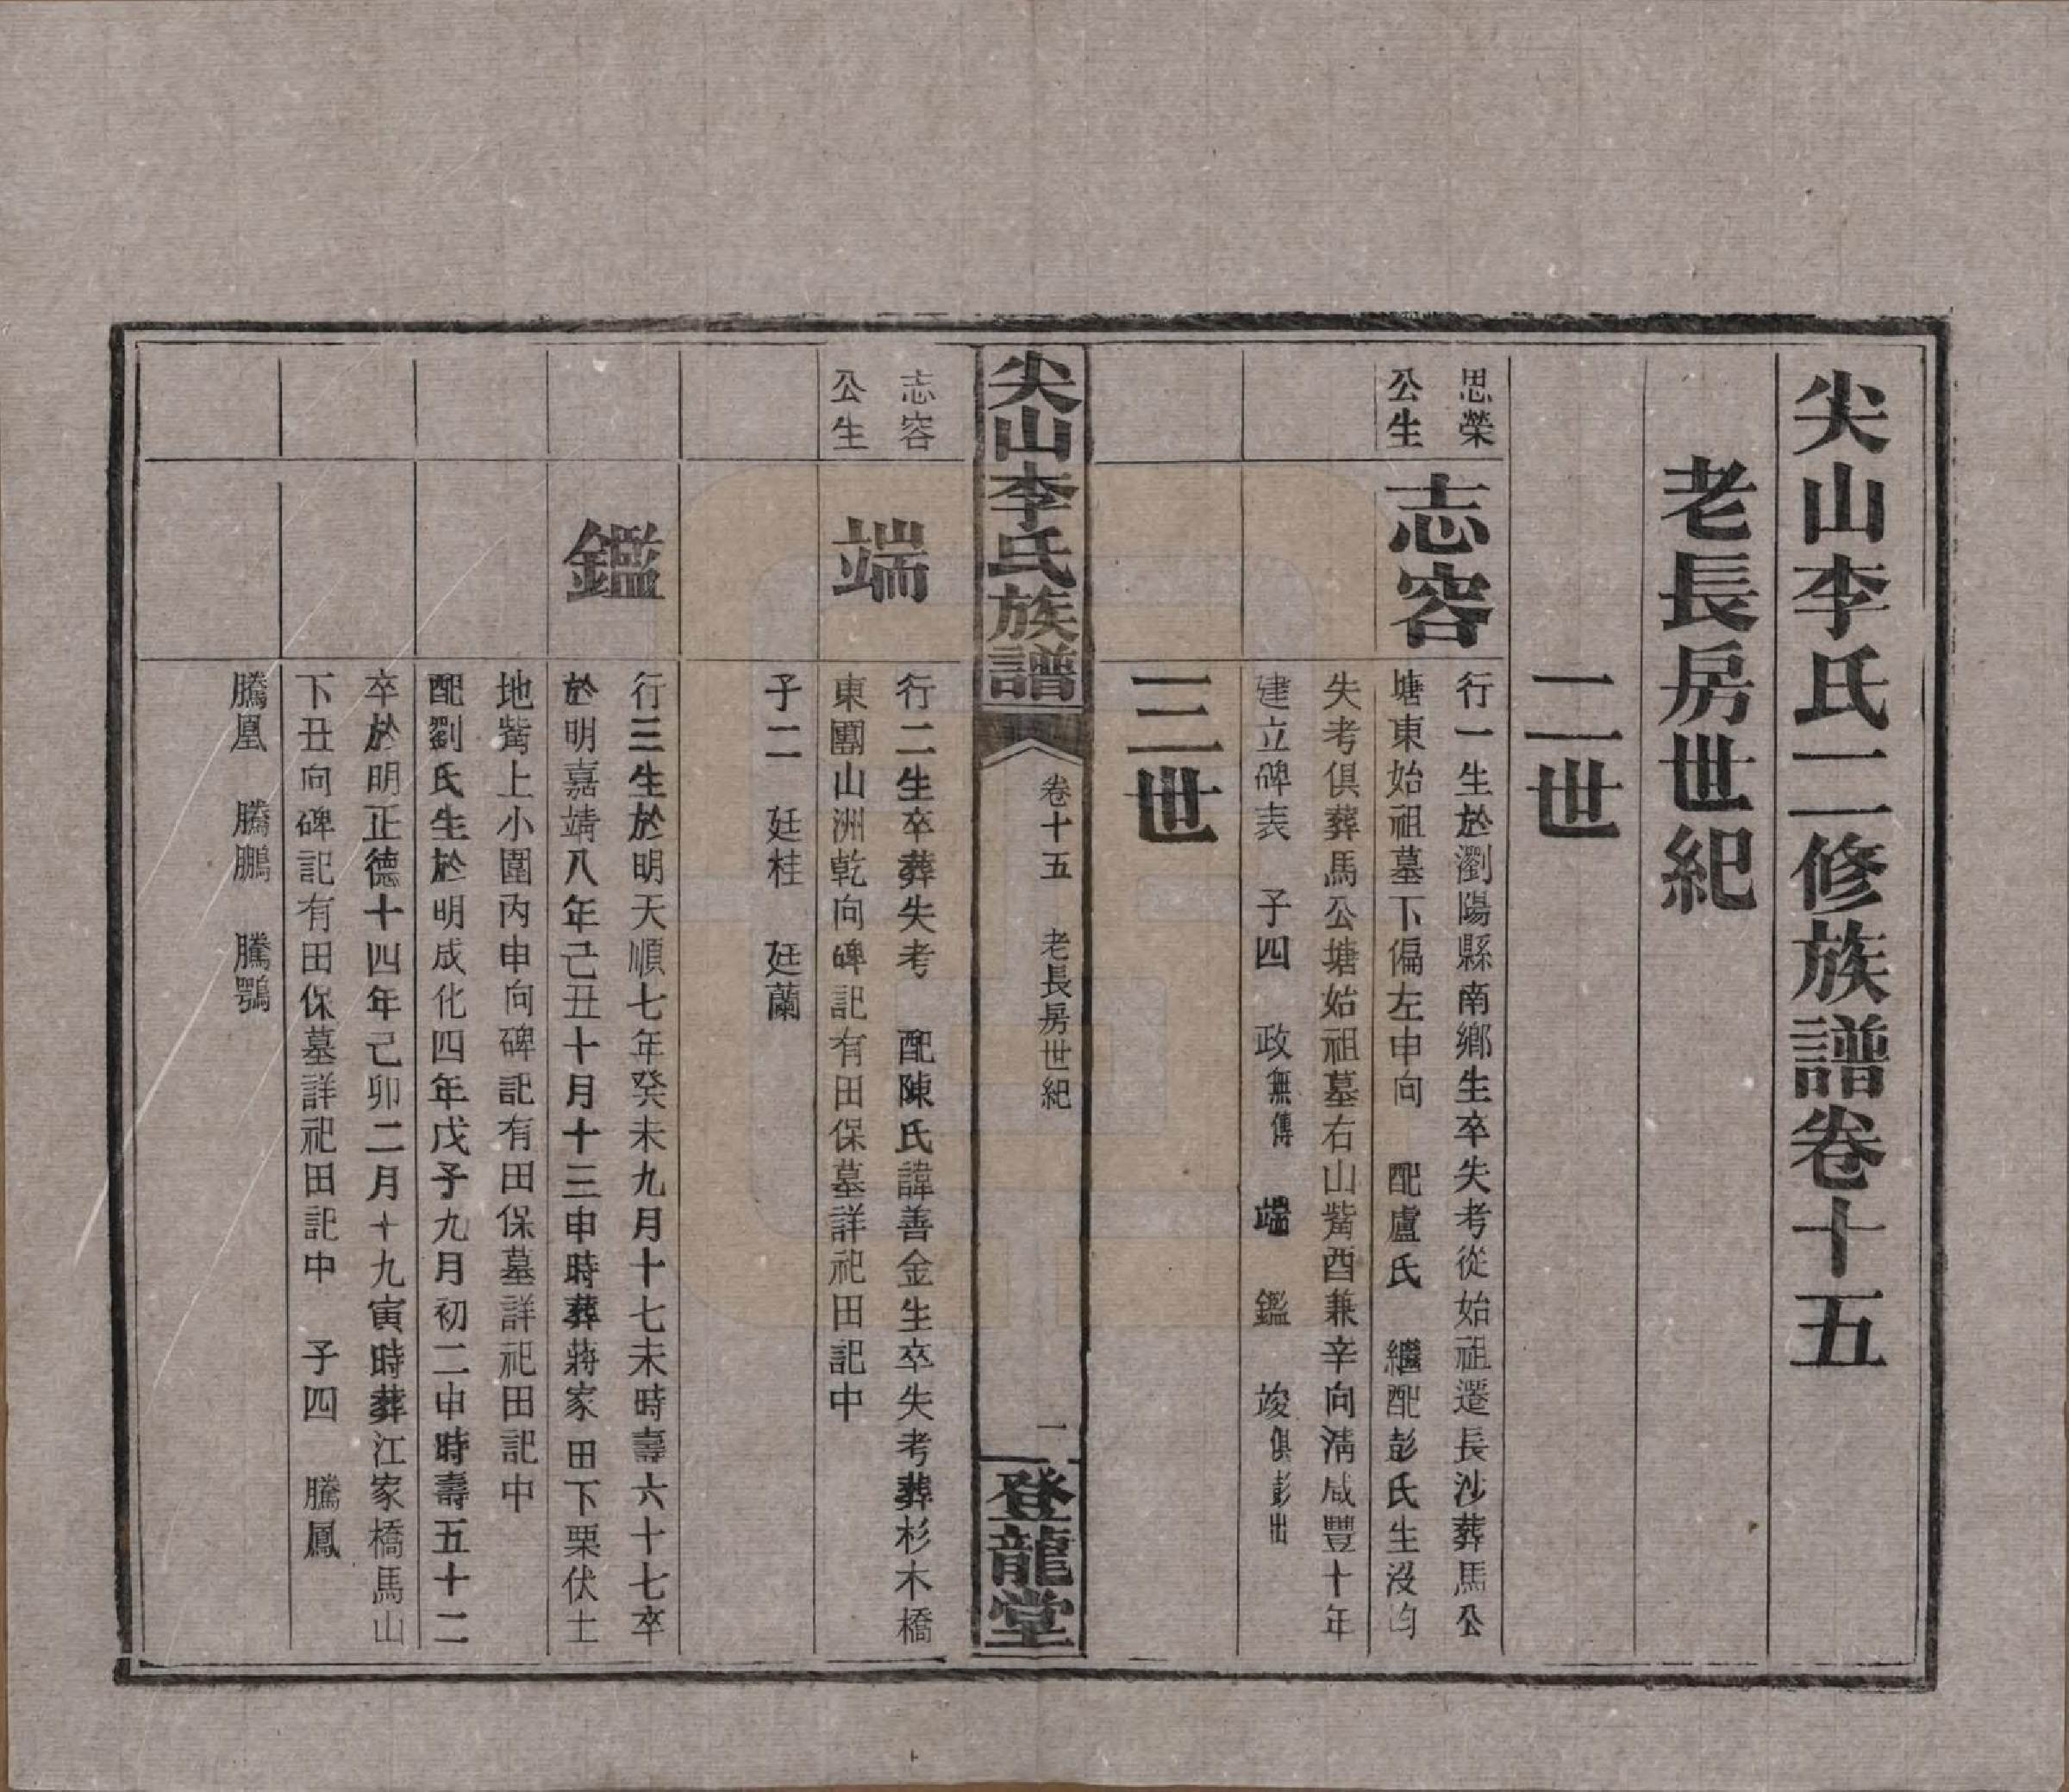 尖山李氏二修族譜卷十五
老長房世紀
二世
思榮
公生
志容
行一生於瀏陽縣南鄉生卒失考從始祖遷長沙葬馬公
塘東始祖墓下偏左申向 配盧氏 繼配彭氏生沒均
失考俱葬馬公塘始祖墓右山觜酉兼辛向清咸豐十年
建立碑表 子四 政無傳 端 鑑 竣俱彭出
三世
尖山李氏族譜
卷十五 老長房世紀
一
登龍堂
志容
公生
端
行二生卒葬失考 配陳氏諱善金生卒失考葬杉木橋
東團山洲乾向碑記有田保墓詳祀田記中
子二 廷桂 廷蘭
鑑
行三生於明天順七年癸未九月十七未時壽六十七卒
於明嘉靖八年己丑十月十三申時葬蔣家田下栗伏士
地觜上小圍內申向碑記有田保墓詳祀田記中
配劉氏生於明成化四年戊子九月初二申時壽五十二
卒於明正德十四年己卯二月十九寅時葬江家橋馬山
下丑向碑記有田保墓詳祀田記中 子四 騰鳳
騰凰 騰鵬 騰鶚